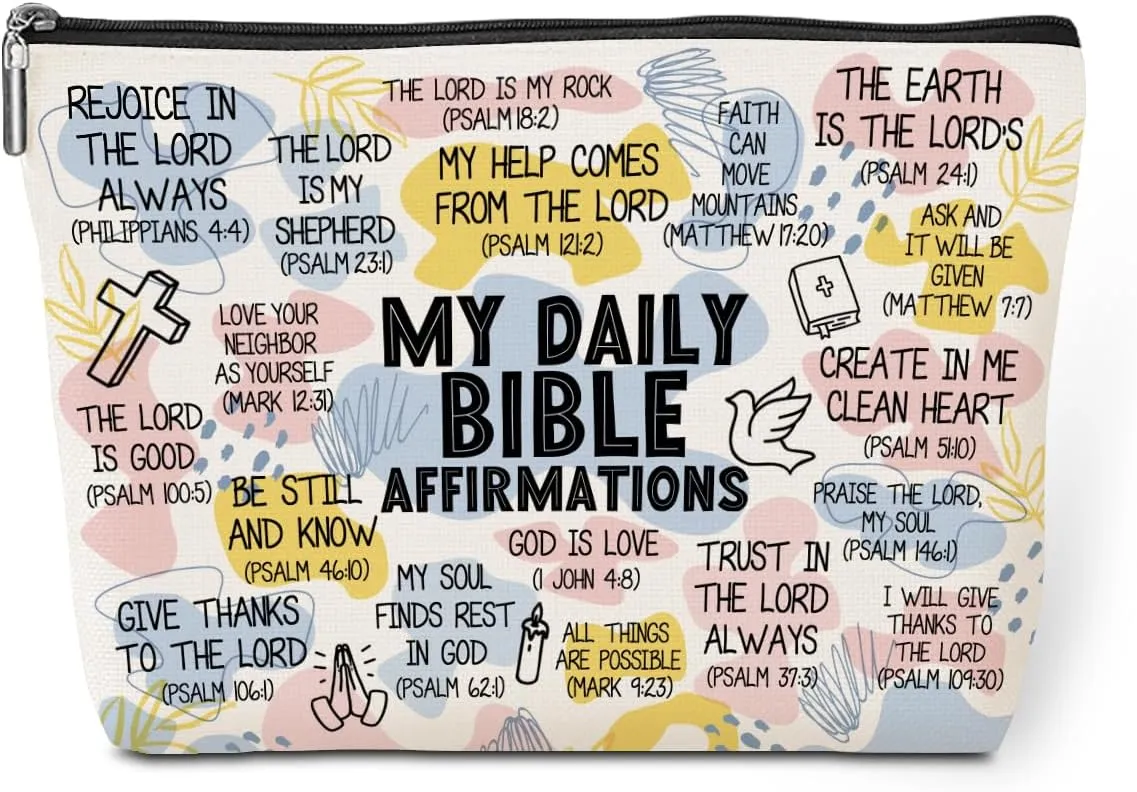 REJOICE IN
THE LORD
ALWAYS
(PHILIPPIANS 4:4)
THE LORD
IS MY
SHEPHERD
(PSALM 23:1)
THE LORD IS MY ROCK
(PSALM 18:2)
MY HELP COMES
FROM THE LORD
(PSALM 121:2)
FAITH
CAN
MOVE
MOUNTAINS
(MATTHEW 17:20)
THE EARTH
IS THE LORD'S
(PSALM 24:1)
ASK AND
IT WILL BE
GIVEN
(MATTHEW 7:7)
LOVE YOUR
NEIGHBOR
AS YOURSELF
(MARK 12:31)
MY DAILY
BIBLE
AFFIRMATIONS
CREATE IN ME
CLEAN HEART
(PSALM 51:10)
THE LORD
IS GOOD
(PSALM 100:5)
BE STILL
AND KNOW
(PSALM 46:10)
PRAISE THE LORD,
MY SOUL
(PSALM 146:1)
GOD IS LOVE
(1 JOHN 4:8)
TRUST IN
THE LORD
ALWAYS
(PSALM 37:3)
GIVE THANKS
TO THE LORD
(PSALM 106:1)
MY SOUL
FINDS REST
IN GOD
(PSALM 62:1)
ALL THINGS
ARE POSSIBLE
(MARK 9:23)
I WILL GIVE
THANKS TO
THE LORD
(PSALM 109:30)